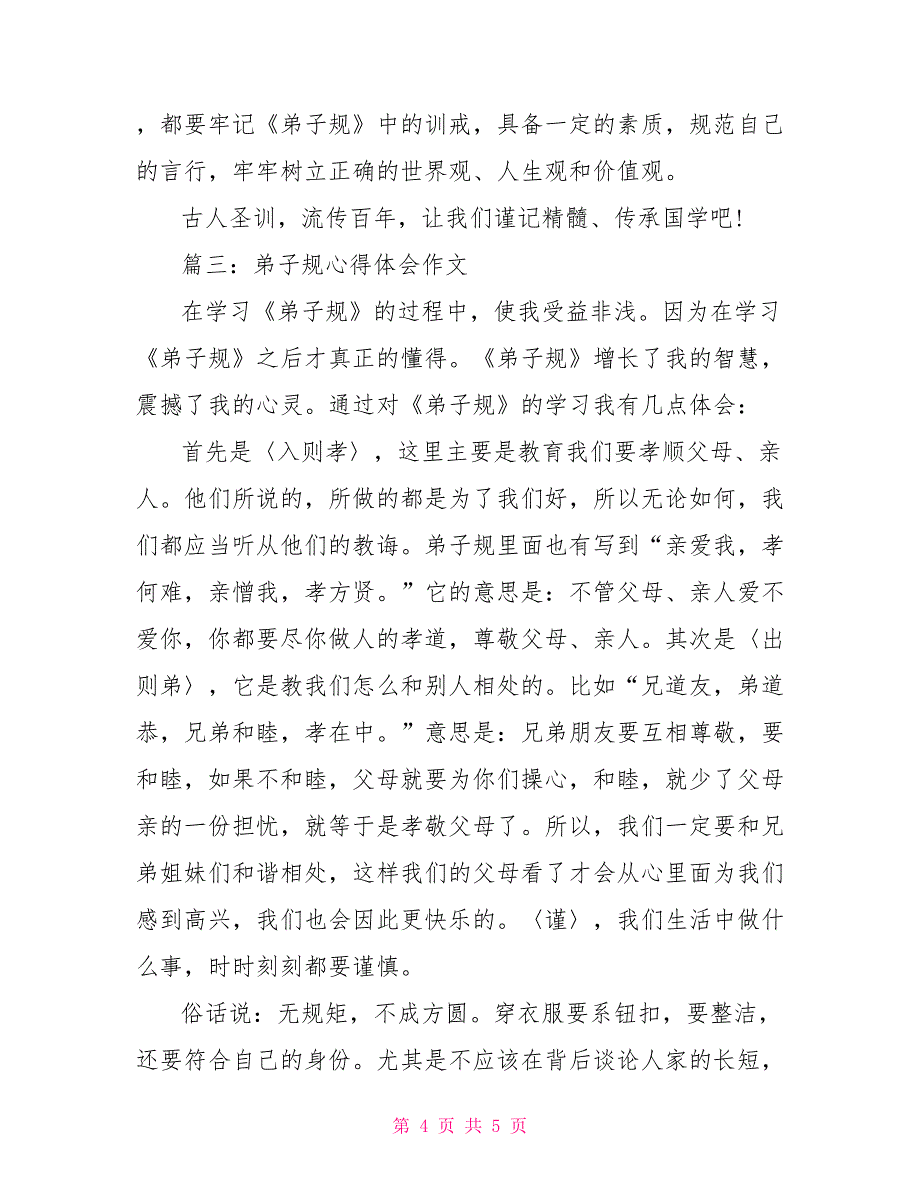 ，都要牢记《弟子规》中的训戒，具备一定的素质，规范自己
的言行，牢牢树立正确的世界观、人生观和价值观。
古人圣训，流传百年，让我们谨记精髓、传承国学吧!
篇三：弟子规心得体会作文
在学习《弟子规》的过程中，使我受益非浅。因为在学习
《弟子规》之后才真正的懂得。《弟子规》增长了我的智慧，
震撼了我的心灵。通过对《弟子规》的学习我有几点体会：
首先是〈入则孝〉，这里主要是教育我们要孝顺父母、亲
人。他们所说的，所做的都是为了我们好，所以无论如何，我
们都应当听从他们的教诲。弟子规里面也有写到“亲爱我，孝
何难，亲憎我，孝方贤。”它的意思是：不管父母、亲人爱不
爱你，你都要尽你做人的孝道，尊敬父母、亲人。其次是〈出
则弟〉，它是教我们怎么和别人相处的。比如“兄道友，弟道
恭，兄弟和睦，孝在中。”意思是：兄弟朋友要互相尊敬，要
和睦，如果不和睦，父母就要为你们操心，和睦，就少了父母
亲的一份担忧，就等于是孝敬父母了。所以，我们一定要和兄
弟姐妹们和谐相处，这样我们的父母看了才会从心里面为我们
感到高兴，我们也会因此更快乐的。〈谨〉，我们生活中做什
么事，时时刻刻都要谨慎。
俗话说：无规矩，不成方圆。穿衣服要系钮扣，要整洁，
还要符合自己的身份。尤其是不应该在背后谈论人家的长短，
第 4 页 共 5 页